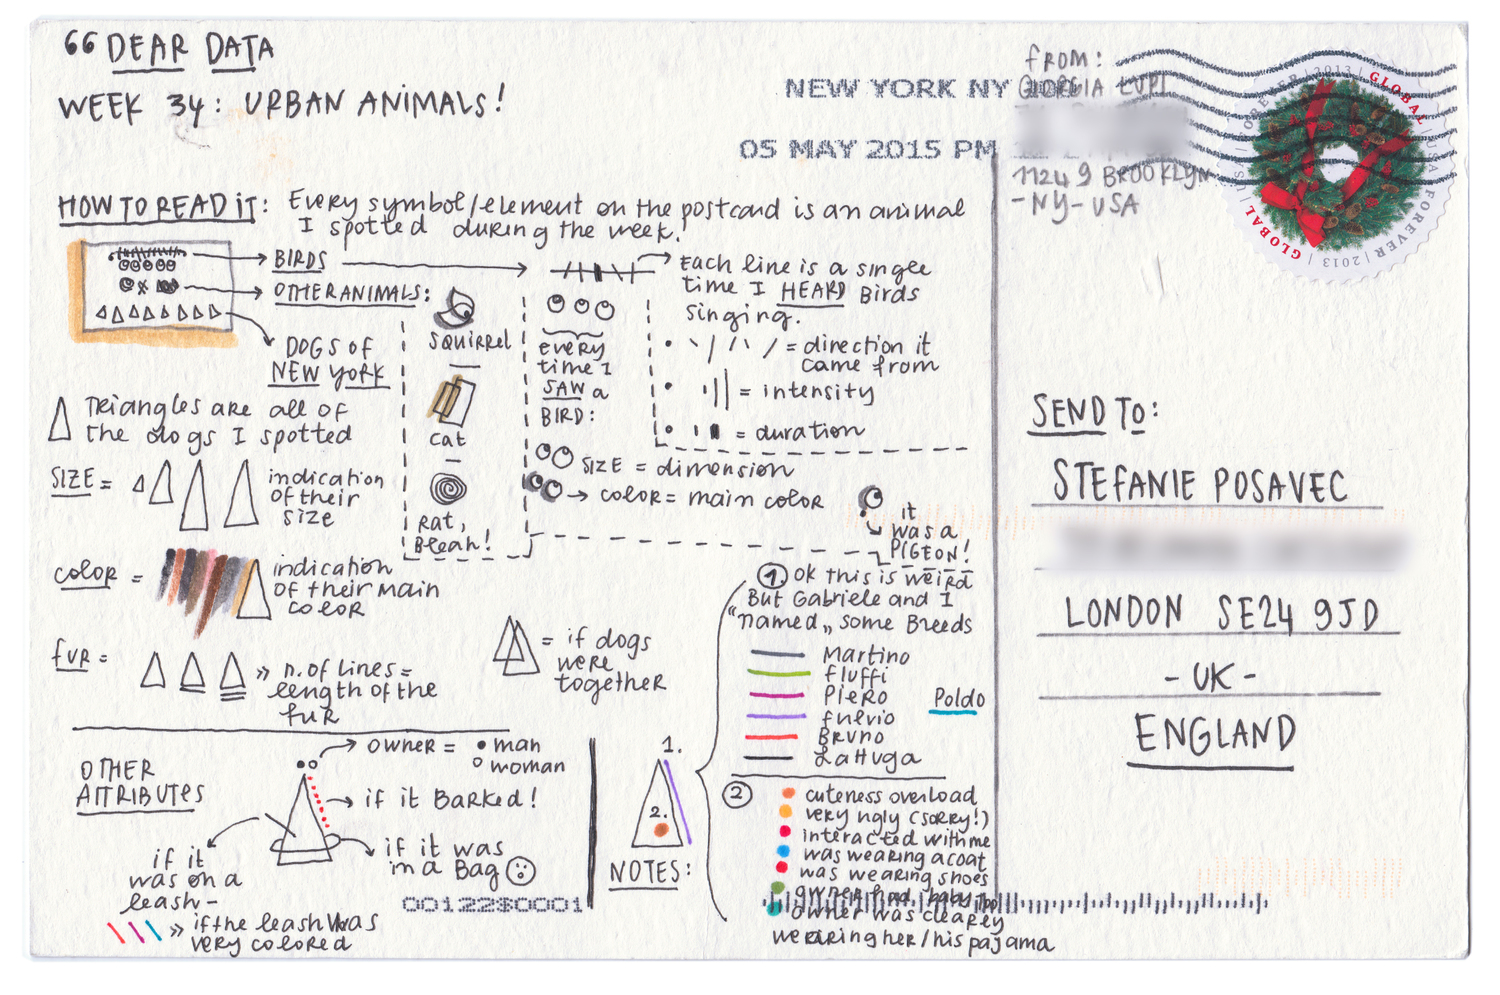 66 DEAR DATA
WEEK 34: URBAN ANIMALS!
NEW YORK NY
05 MAY 2015 PM
FROM:
GIORGIA LUPI
11249 BROOKLYN
-NY- USA
GLOBAL | USA FOREVER | 2013 | GLOBAL | USA FOREVER | 2013 |
HOW TO READ IT: Every symbol/element on the postcard is an animal
I spotted during the week!
BIRDS
OTHER ANIMALS:
DOGS OF
NEW YORK
SQUIRREL
cat
Rat,
Bleah!
every
time I
SAW a
BIRD:
Each line is a single
time I HEARD Birds
singing.
= direction it
came from
= intensity
= duration
SIZE = dimension
color = main color
it
was a
PIGEON!
Triangles are all of
the dogs I spotted
SIZE = indication
of their
size
color = indication
of their main
color
fur = » n. of lines =
length of the
fur
= if dogs
were
together
OTHER
ATTRIBUTES
owner = • man
° woman
if it Barked!
if it was
in a Bag
if it
was on a
leash -
» if the leash was
very colored
00122$0001
NOTES:
1.
2.
1 ok this is weird
But Gabriele and I
"named„ some Breeds
Martino
fluffi
Piero
fulvio
Bruno
Lattuga
Poldo
2 cuteness overload
very ugly (sorry!)
interacted with me
was wearing a coat
was wearing shoes
owner had baby
owner was clearly
wearing her/his pajama
SEND TO:
STEFANIE POSAVEC
LONDON SE24 9JD
- UK -
ENGLAND